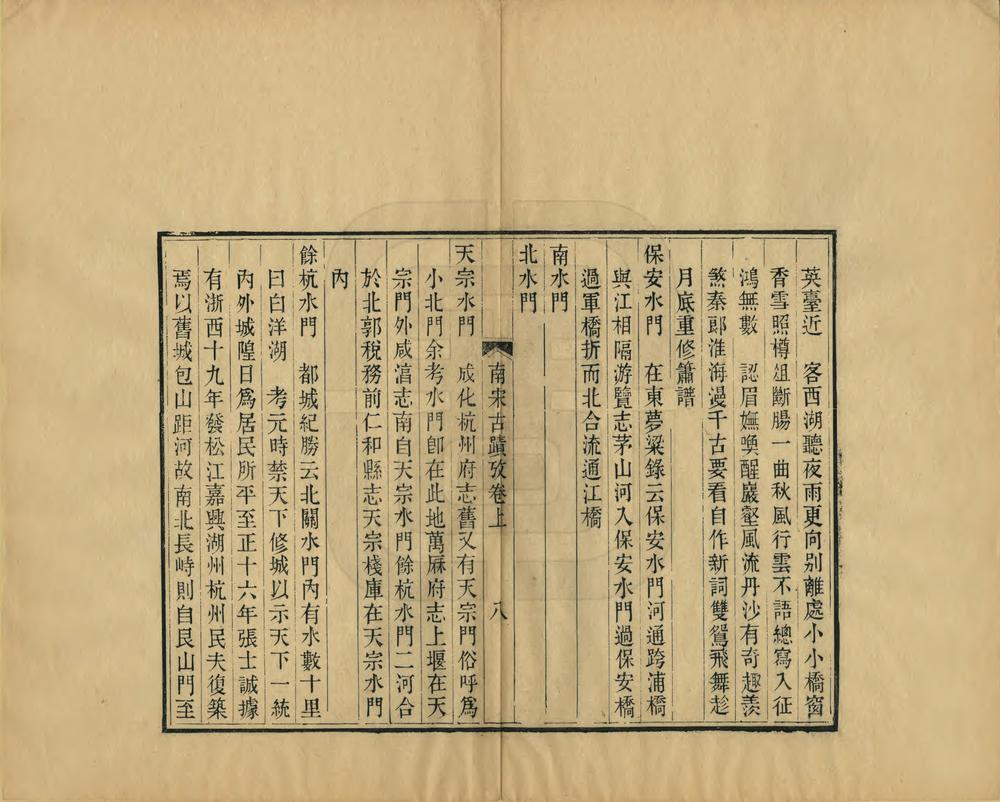 英臺近　客西湖聽夜雨更向別離處小小橋窗
香雪照樽俎斷腸一曲秋風行雲不語總寫入征
鴻無數　認眉嫵喚醒巖壑風流丹沙有奇趣羨
煞秦郎淮海漫千古要看自作新詞雙鴛飛舞趁
月底重修簫譜
保安水門　在東夢粱錄云保安水門河通跨浦橋
與江相隔游覽志茅山河入保安水門過保安橋
過軍橋折而北合流通江橋
南水門
北水門
南宋古蹟攷卷上　八
天宗水門　成化杭州府志舊又有天宗門俗呼爲
小北門余考水門卽在此地萬厤府志上堰在天
宗門外咸湻志南自天宗水門餘杭水門二河合
於北郭稅務前仁和縣志天宗棧庫在天宗水門
內
餘杭水門　都城紀勝云北關水門內有水數十里
曰白洋湖　考元時禁天下修城以示天下一統
內外城隍日爲居民所平至正十六年張士誠據
有浙西十九年發松江嘉興湖州杭州民夫復築
焉以舊城包山距河故南北長峙則自艮山門至